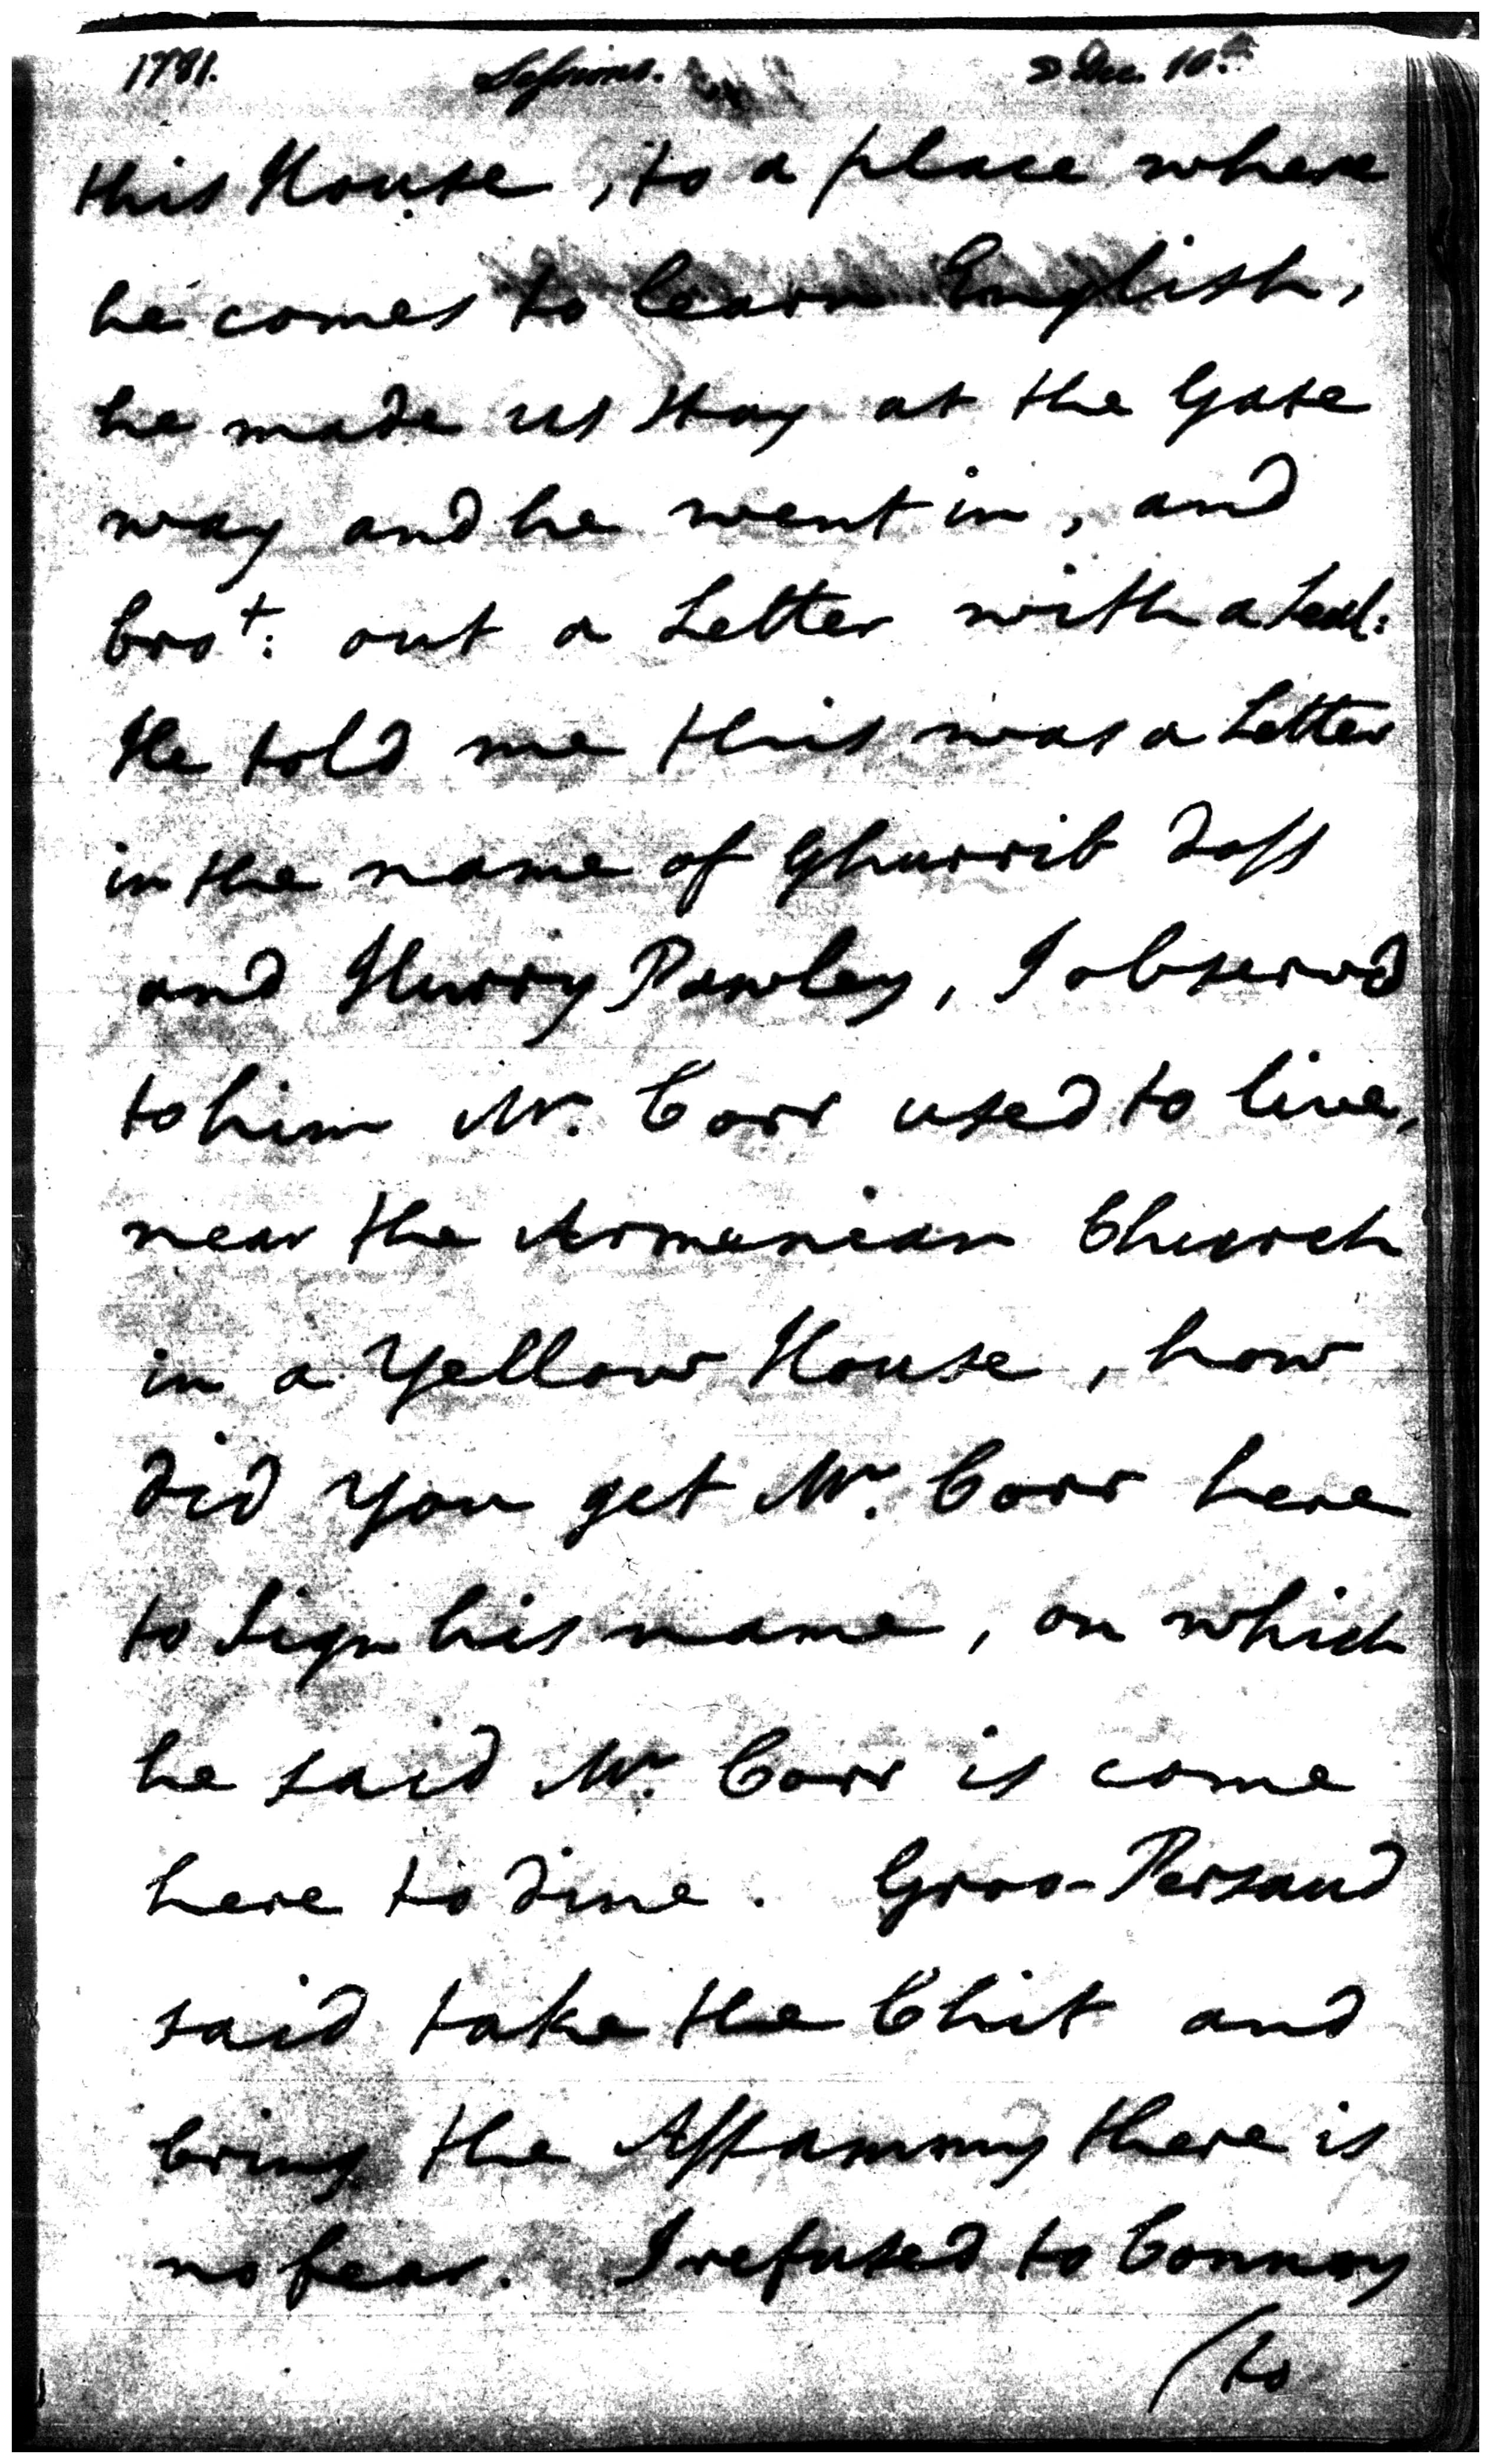 1781. Sessions. Dec. 10th
this House, to a place where
he comes to learn English,
he made us stay at the Gate
way and he went in, and
brot: out a Letter with a Seal:
He told me this was a Letter
in the name of Ghurrib Doss
and Hurry Pawley, I observed
to him Mr. Carr used to live,
near the Armenian Church
in a Yellow House, how
did you get Mr. Carr here
to Sign his name, on which
he said Mr. Carr is come
here to dine. Groo-Persaud
said take the Chit and
bring the Assammy there is
no fear. I refused to Connoy
(to